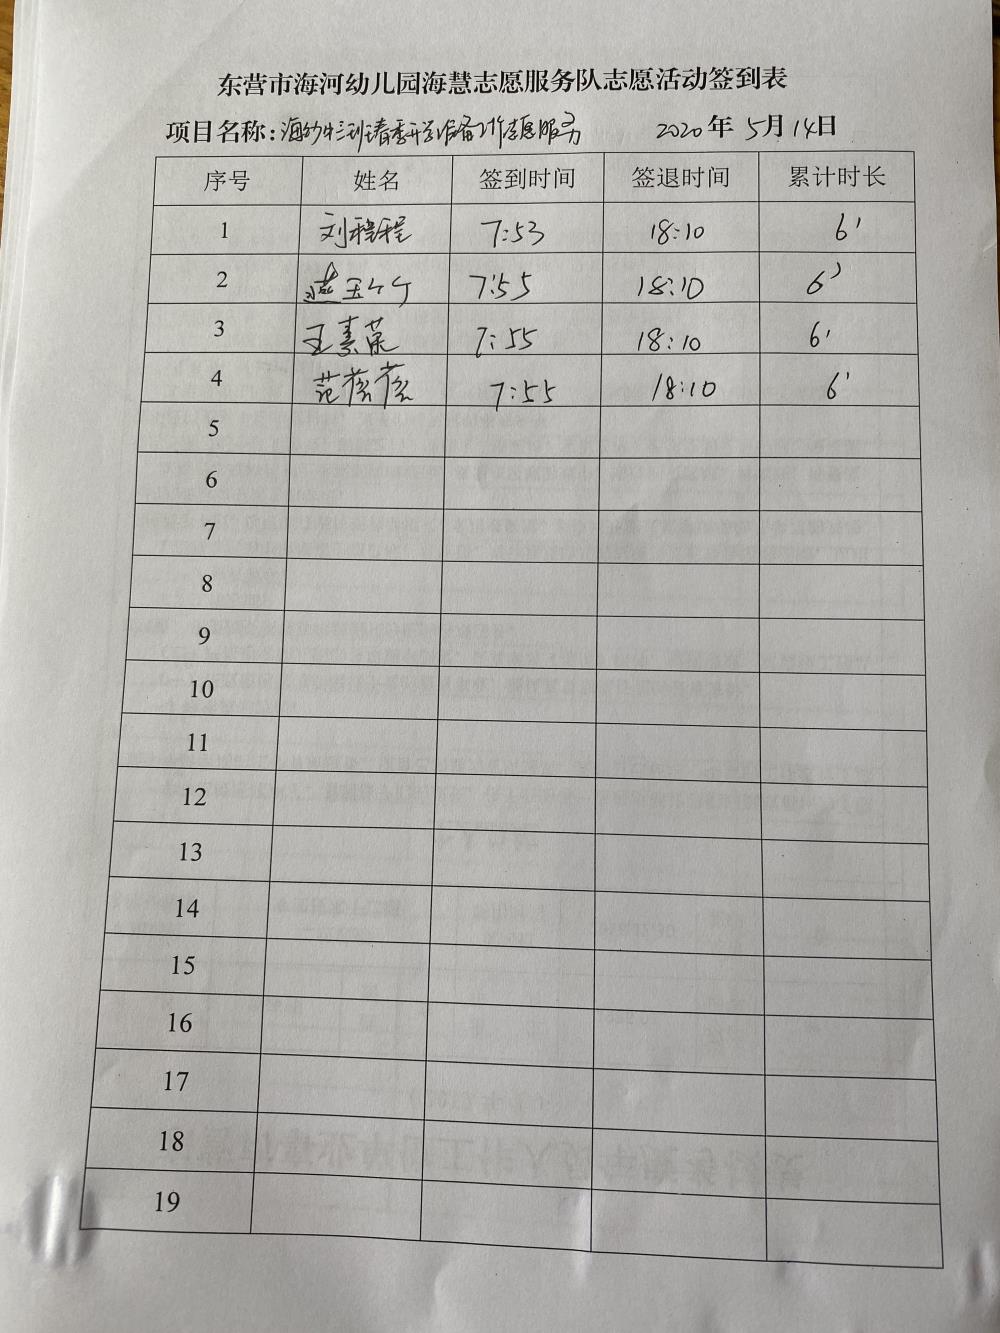 东营市海河幼儿园海慧志愿服务队志愿活动签到表
项目名称：海幼彩班春季开学准备工作志愿服务 2020年 5月 14日
序号 姓名 签到时间 签退时间 累计时长
1 刘程程 7:53 18:10 6'
2 孟玉 7:55 18:10 6'
3 王素荣 7:55 18:10 6'
4 范蓓蓓 7:55 18:10 6'
5
6
7
8
9
10
11
12
13
14
15
16
17
18
19